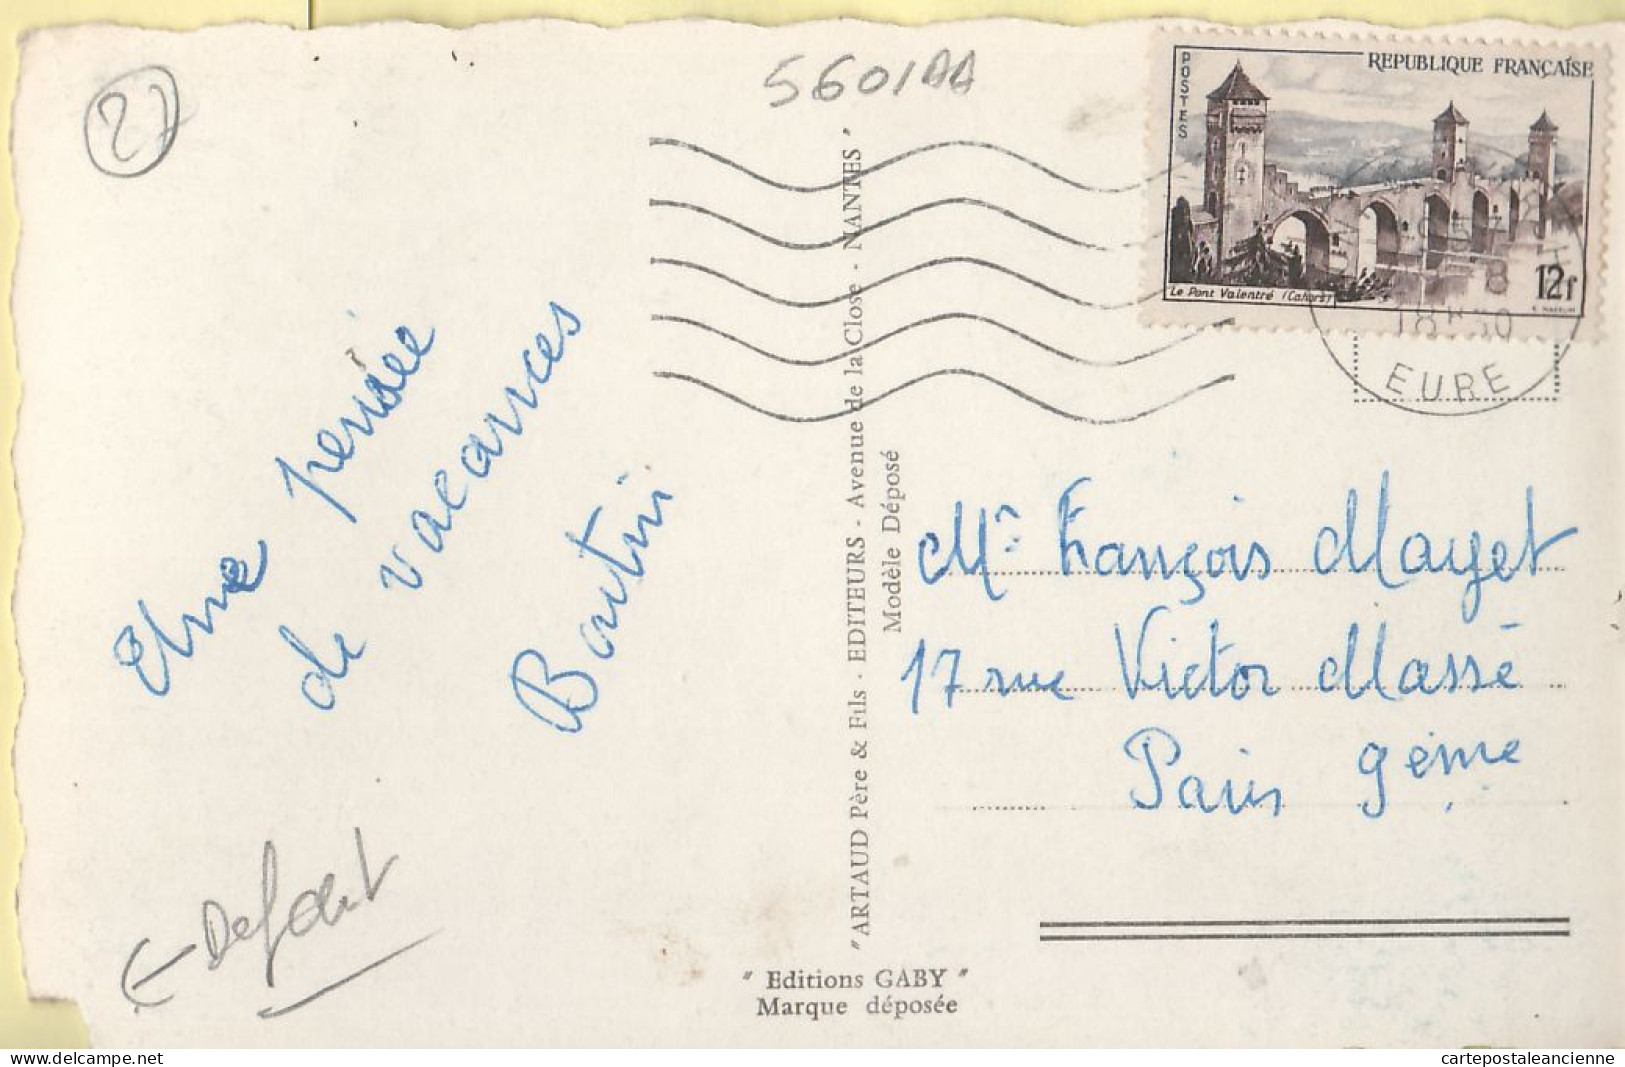 27
5601AA
POSTES
REPUBLIQUE FRANÇAISE
Le Pont Valentré (Cahors)
12f
18H30
EURE
Une pensée
de vacances
"ARTAUD Père & Fils - EDITEURS - Avenue de la Close - NANTES"
Modèle Déposé
Mr François Mayet
17 rue Victor Massé
Paris 9ème
Defaut
" Editions GABY "
Marque déposée
delcampe.net
cartepostaleancienne